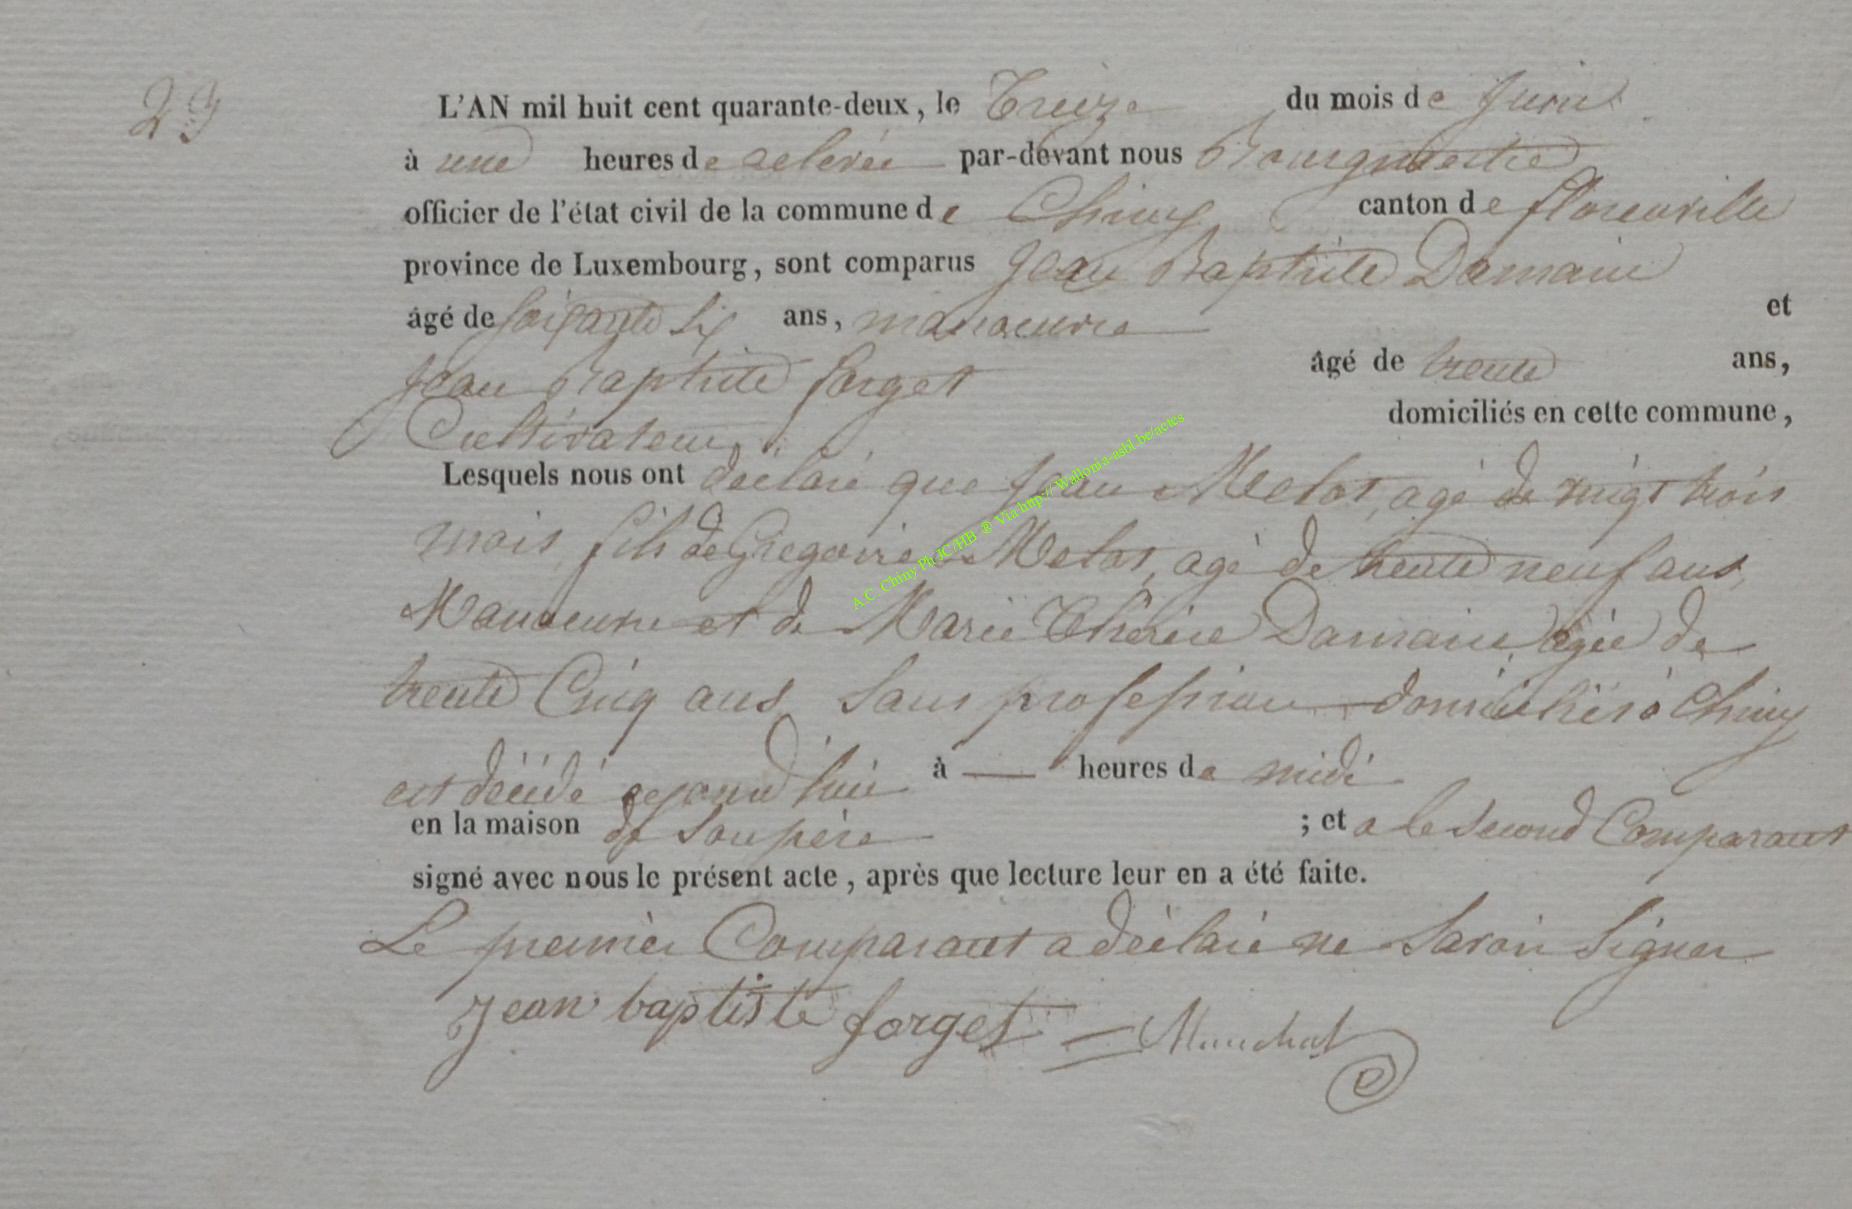 29
L'AN mil huit cent quarante-deux, le Treize du mois de Juin
à une heures de relevée par-devant nous Bourgmestre
officier de l'état civil de la commune de Chiny canton de florenville
province de Luxembourg, sont comparus Jean Baptiste Damain
âgé de soixante six ans, manoeuvre et
Jean Baptiste forget âgé de trente ans,
Cultivateur domiciliés en cette commune,
Lesquels nous ont déclaré que Jean Melot, agé de vingt trois
mois, fils de Gregoire Melot, agé de trente neuf ans,
Manoeuvre et de Marie Thérèse Damain, agée de
trente Cinq ans, sans profession domiciliés à Chiny
est décédé aujourd'hui à — heures de midi
en la maison de son père ; et a le second Comparant
signé avec nous le présent acte, après que lecture leur en a été faite.
Le premier Comparant a déclaré ne Savoir Signer
Jean baptiste forget
A.C. Chiny Ph JC/HB ® Via http:// Wallonia-asbl.be/actes